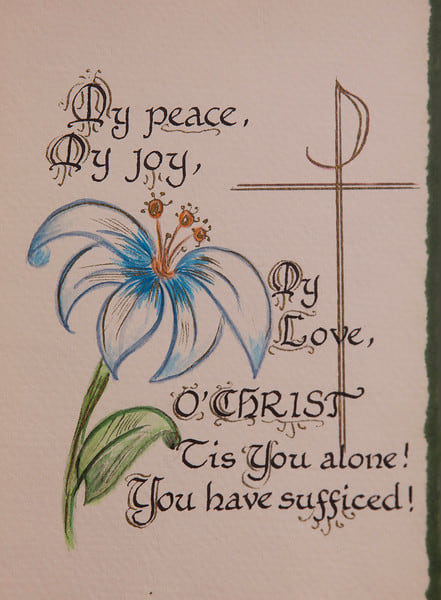 My peace,
My joy,
My
Love,
O'CHRIST
Tis You alone!
You have sufficed!